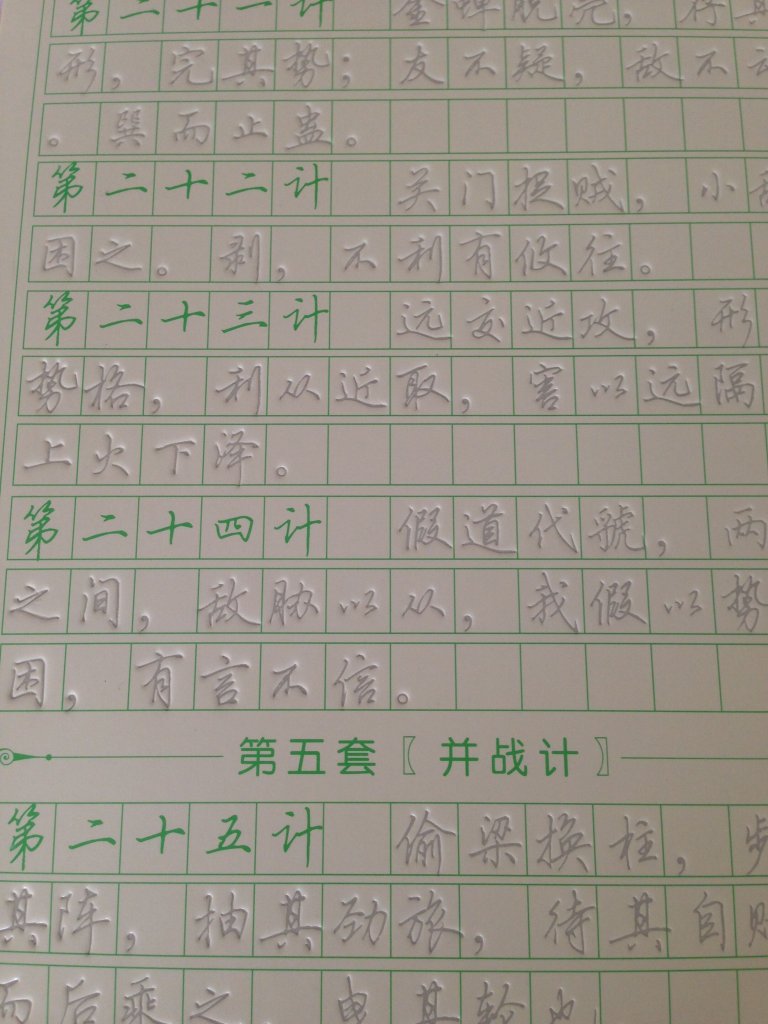 第二十一计 金蝉脱壳，存其
形，完其势；友不疑，敌不动
。巽而止蛊。
第二十二计 关门捉贼，小敌
困之。剥，不利有攸往。
第二十三计 远交近攻，形
势格，利从近取，害以远隔
上火下泽。
第二十四计 假道伐虢，两
之间，敌胁以从，我假以势
困，有言不信。
第五套〖并战计〗
第二十五计 偷梁换柱，步
其阵，抽其劲旅，待其自败
而后乘之 曳其轮也